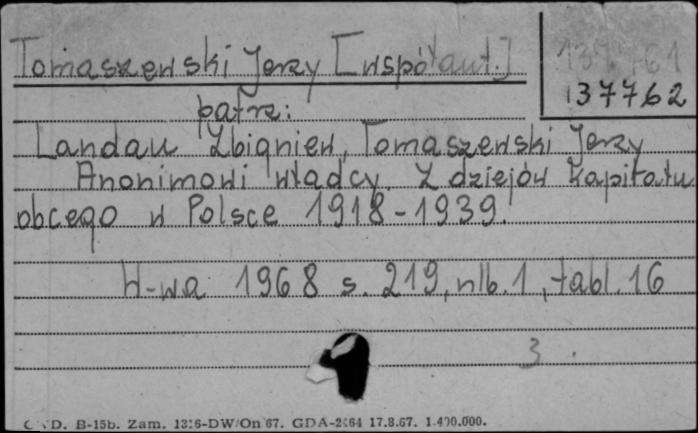 Tomaszewski Jerzy [współaut.]
137762
patrz:
Landau Zbigniew, Tomaszewski Jerzy
Anonimowi władcy. Z dziejów kapitału
obcego w Polsce 1918-1939.
W-wa 1968 s. 219, nlb. 1, tabl. 16
3
D. B-15b. Zam. 1326-DW/On 67. GDA-2364 17.8.67. 1.400.000.